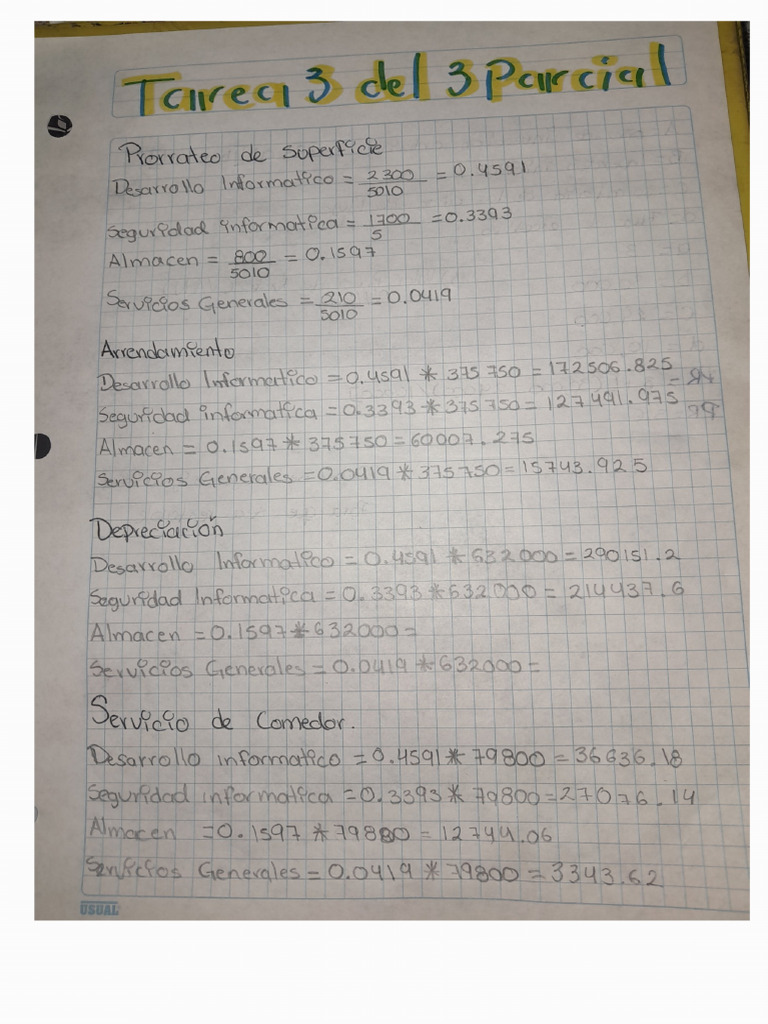 Tarea 3 del 3 Parcial
Prorrateo de Superficie
Desarrollo Informatico = 2300/5010 = 0.4591
Seguridad informatica = 1700/5 = 0.3393
Almacen = 800/5010 = 0.1597
Servicios Generales = 210/5010 = 0.0419
Arrendamiento
Desarrollo Informatico = 0.4591 * 375750 = 172506.825
Seguridad informatica = 0.3393 * 375750 = 127491.975
Almacen = 0.1597 * 375750 = 60007.275
Servicios Generales = 0.0419 * 375750 = 15743.925
Depreciación
Desarrollo Informatico = 0.4591 * 632000 = 290151.2
Seguridad Informatica = 0.3393 * 632000 = 214437.6
Almacen = 0.1597 * 632000 =
Servicios Generales = 0.0419 * 632000 =
Servicio de Comedor.
Desarrollo informatico = 0.4591 * 79800 = 36636.18
Seguridad informatica = 0.3393 * 79800 = 27076.14
Almacen = 0.1597 * 79800 = 12744.06
Servicios Generales = 0.0419 * 79800 = 3343.62
USUAL